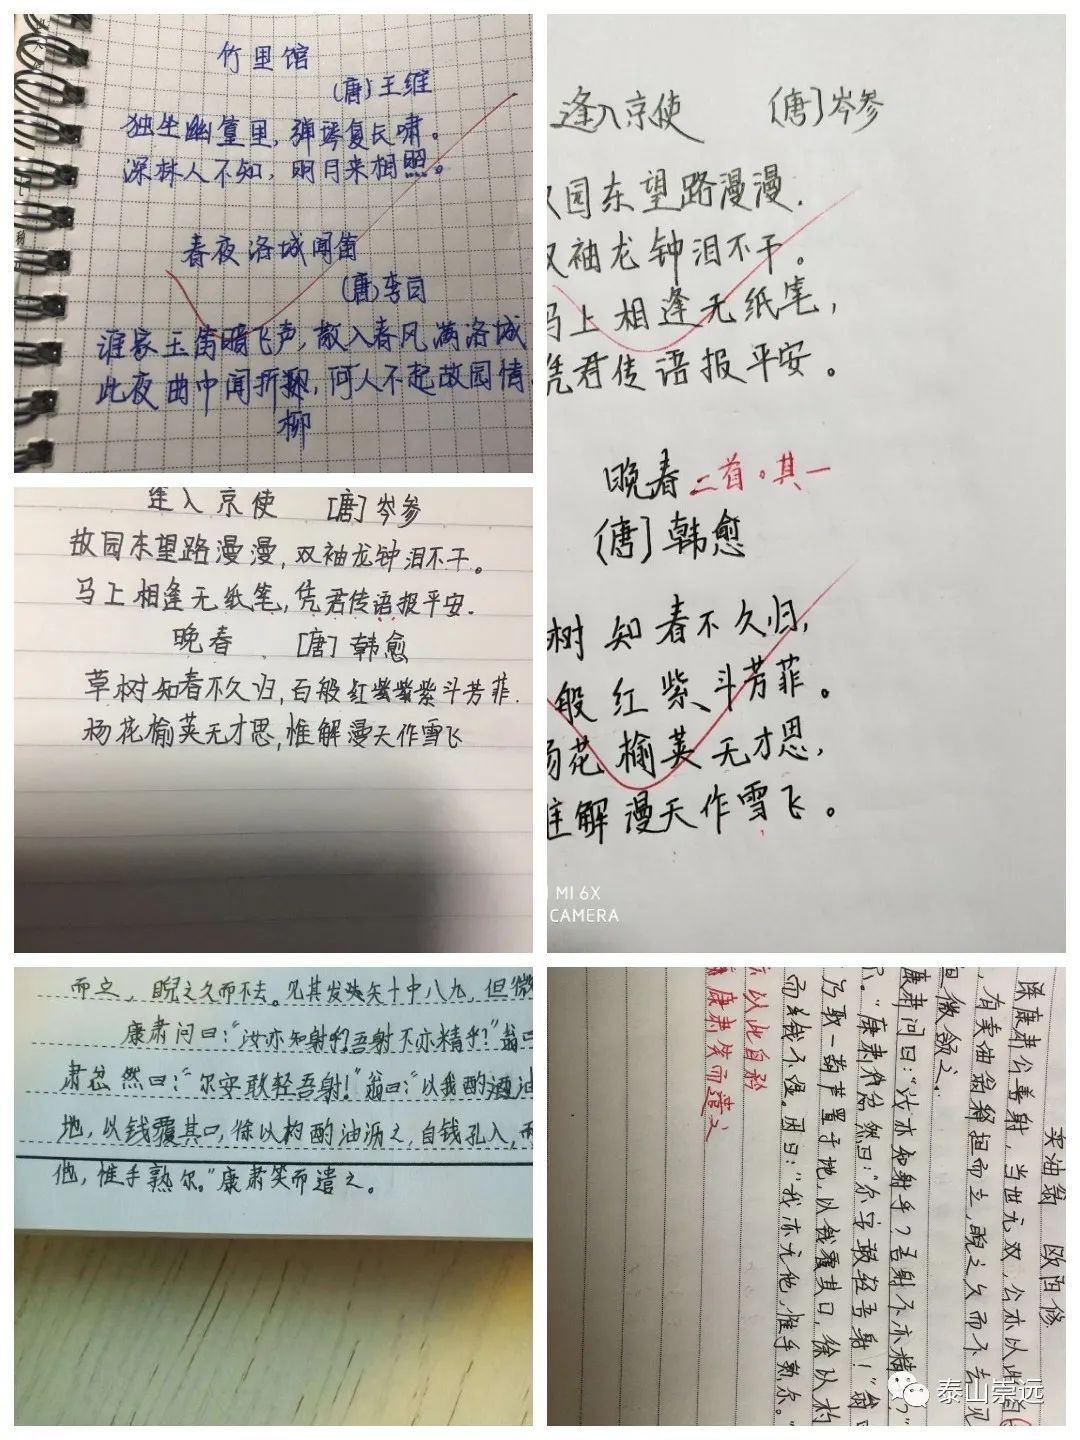 竹里馆
(唐)王维
独坐幽篁里,弹琴复长啸。
深林人不知,明月来相照。
春夜洛城闻笛
(唐)李白
谁家玉笛暗飞声,散入春风满洛城
此夜曲中闻折,何人不起故园情
柳
逢入京使 [唐]岑参
园东望路漫漫.
双袖龙钟泪不干。
马上相逢无纸笔,
凭君传语报平安。
晚春二首。其一
[唐]韩愈
树知春不久归,
般红紫斗芳菲。
杨花榆荚无才思,
惟解漫天作雪飞。
MI 6X
CAMERA
逢入京使 [唐]岑参
故园东望路漫漫,双袖龙钟泪不干。
马上相逢无纸笔,凭君传语报平安.
晚春 [唐]韩愈
草树知春不久归,百般红紫斗芳菲.
杨花榆荚无才思,惟解漫天作雪飞
而立,睨之久而不去。见其发矢十中八九,但微
康肃问曰:“汝亦知射乎?吾射不亦精乎?”翁曰
肃忿然曰:“尔安敢轻吾射!”翁曰:“以我酌油
地,以钱覆其口,徐以杓酌油沥之,自钱孔入,而
他,惟手熟尔。”康肃笑而遣之。
卖油翁 欧阳修
陈康肃公善射,当世无双,公亦以此自
,有卖油翁释担而立,睨之久而不去,见
但微颔之。
康肃问曰:“汝亦知射乎?吾射不亦精乎?”
”康肃忿然曰:“尔安敢轻吾射!”翁曰
乃取一葫芦置于地,以钱覆其口,徐以杓
而钱不湿。因曰:“我亦无他,惟手熟尔。”
以此自矜
康肃笑而遣之
泰山崇远